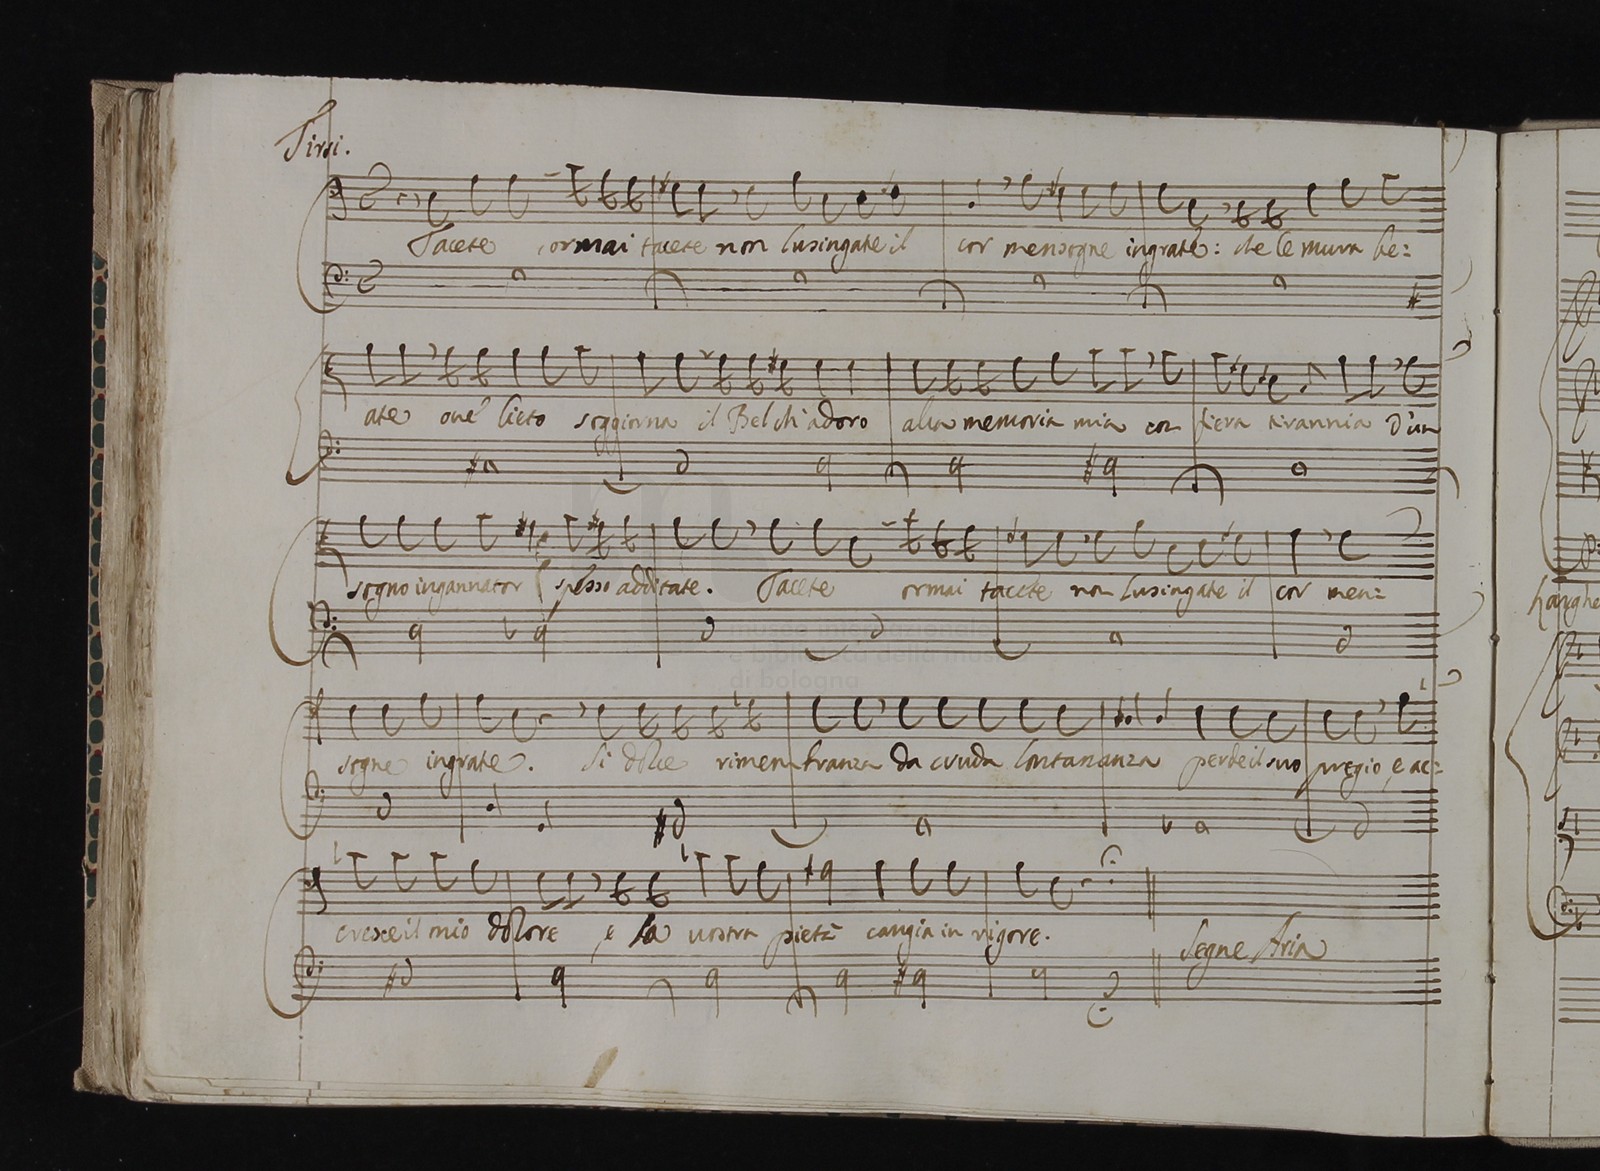 Tirsi.
Tacete ormai tacete non lusingate il cor mensogne ingrate: che le mura be=
ate oue lieto soggiorna il Bel ch'adoro alla memoria mia con fiera tirannia d'un
sogno ingannator spesso additate. Tacete ormai tacete non lusingate il cor men=
museo internazionale
e biblioteca della musica
di bologna
sogne ingrate. Si dolce rimembranza da cruda lontananza perde il suo pregio, e ac=
cresce il mio dolore, e la uostra pietà cangia in rigore.
Segue Aria